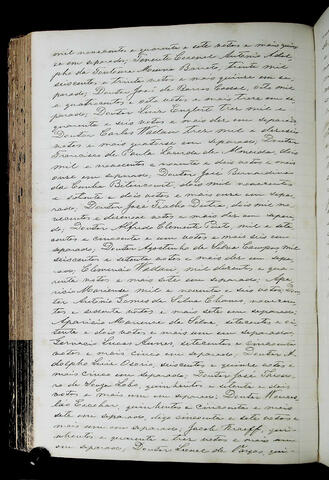 mil novecentos e quarenta e sete votos e mais quin
ze em separado; Tenente Coronel Antonio Adol
pho da Fontoura Menna Barreto, trinta mil
seiscentos e trinta votos e mais quinze em se
parado; Doutor José de Barros Cassal, oito mil
e quatrocentos e sete votos e mais tres em se
parado; Doutor Luiz Englert tres mil e
quarenta e seis votos e mais dez em separado
Doutor Carlos Wallau tres mil e dezeseis
votos e mais quatorze em separado; Doutor
Francisco de Paula Lacerda de Almeida, dois
mil e novecentos e noventa e dois votos e mais
onze em separado; Doutor José Bernardino
da Cunha Bittencourt, dois mil novecentos
e setenta e dois votos e mais onze em sepa
rado; Doutor José Fialho Dutra, dois mil no
vecentos e dezenove votos e mais dez em separa
do; Doutor Alfredo Clemente Pinto, mil e sete
centos e cincoenta e um votos e mais dez em se
parado; Doutor Agostinho da Silva Campos, mil
seiscentos e setenta votos e mais dez em sepa
rado; Clemencio Wallau, mil duzentos e qua
renta votos e mais sete em separado; Apa
ricio Mariense mil e noventa e dois votos; Dou
tor Antonio Gomes da Silva Chaves, novecen
tos e sessenta votos e mais sete em separado;
Apparicio Mariense da Silva, setecentos e oi
tenta e dois votos e mais um em separado;
Gervasio Lucas Annes, setecentos e cincoenta
votos e mais cinco em separado; Doutor A
dolpho Luiz Osorio, seiscentos e quinze votos e
mais cinco em separado; Doutor José Thomaz
de Souza Lobo, quinhentos e setenta e dois
votos e mais um em separado; Doutor Wences
lau Escobar, quinhentos e cincoenta e mais
sete em separado digo cincoenta e sete votos e
mais um em separado, Jacob Kraeff, qui
nhentos e quarenta e tres votos e mais um
em separado, Doutor Leonel de Vargas, qui